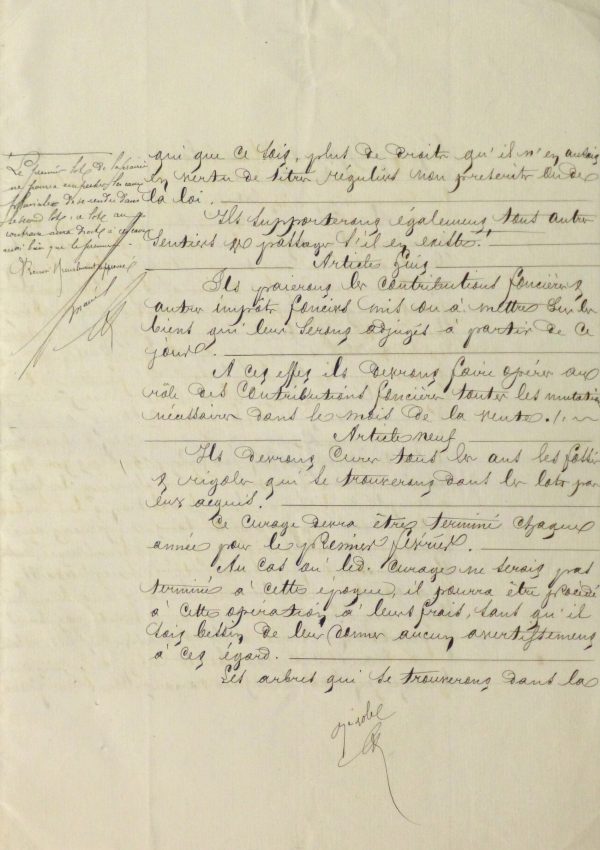 qui que ce soit, plus de droits qu'il n'en aurait
en vertu de titres réguliers non prescrits ou de
la loi.
Ils supporteront également tous autres
sentiers & passages s'il en existe.
Article huit
Ils paieront les contributions foncières &
autres impôts fonciers mis ou à mettre sur les
biens qui leur seront adjugés à partir de ce
jour.
A cet effet ils devront faire opérer au
rôle des contributions foncières toutes les mutations
nécessaires dans le mois de la vente.
Article neuf
Ils devront curer tous les ans les fossés
& rigoles qui se trouveront dans les lots par
eux acquis.
Ce curage devra être terminé chaque
année pour le premier février.
Au cas où led. curage ne serait pas
terminé à cette époque, il pourra être procédé
à cette opération, à leurs frais, sans qu'il
soit besoin de leur donner aucun avertissement
à cet égard.
Les arbres qui se trouveront dans la
Le premier lot de la prairie
ne pourra empêcher les eaux
de se rendre dans
le second lot, ce lot au
contraire aura droit à ces eaux
aussi bien que le premier.